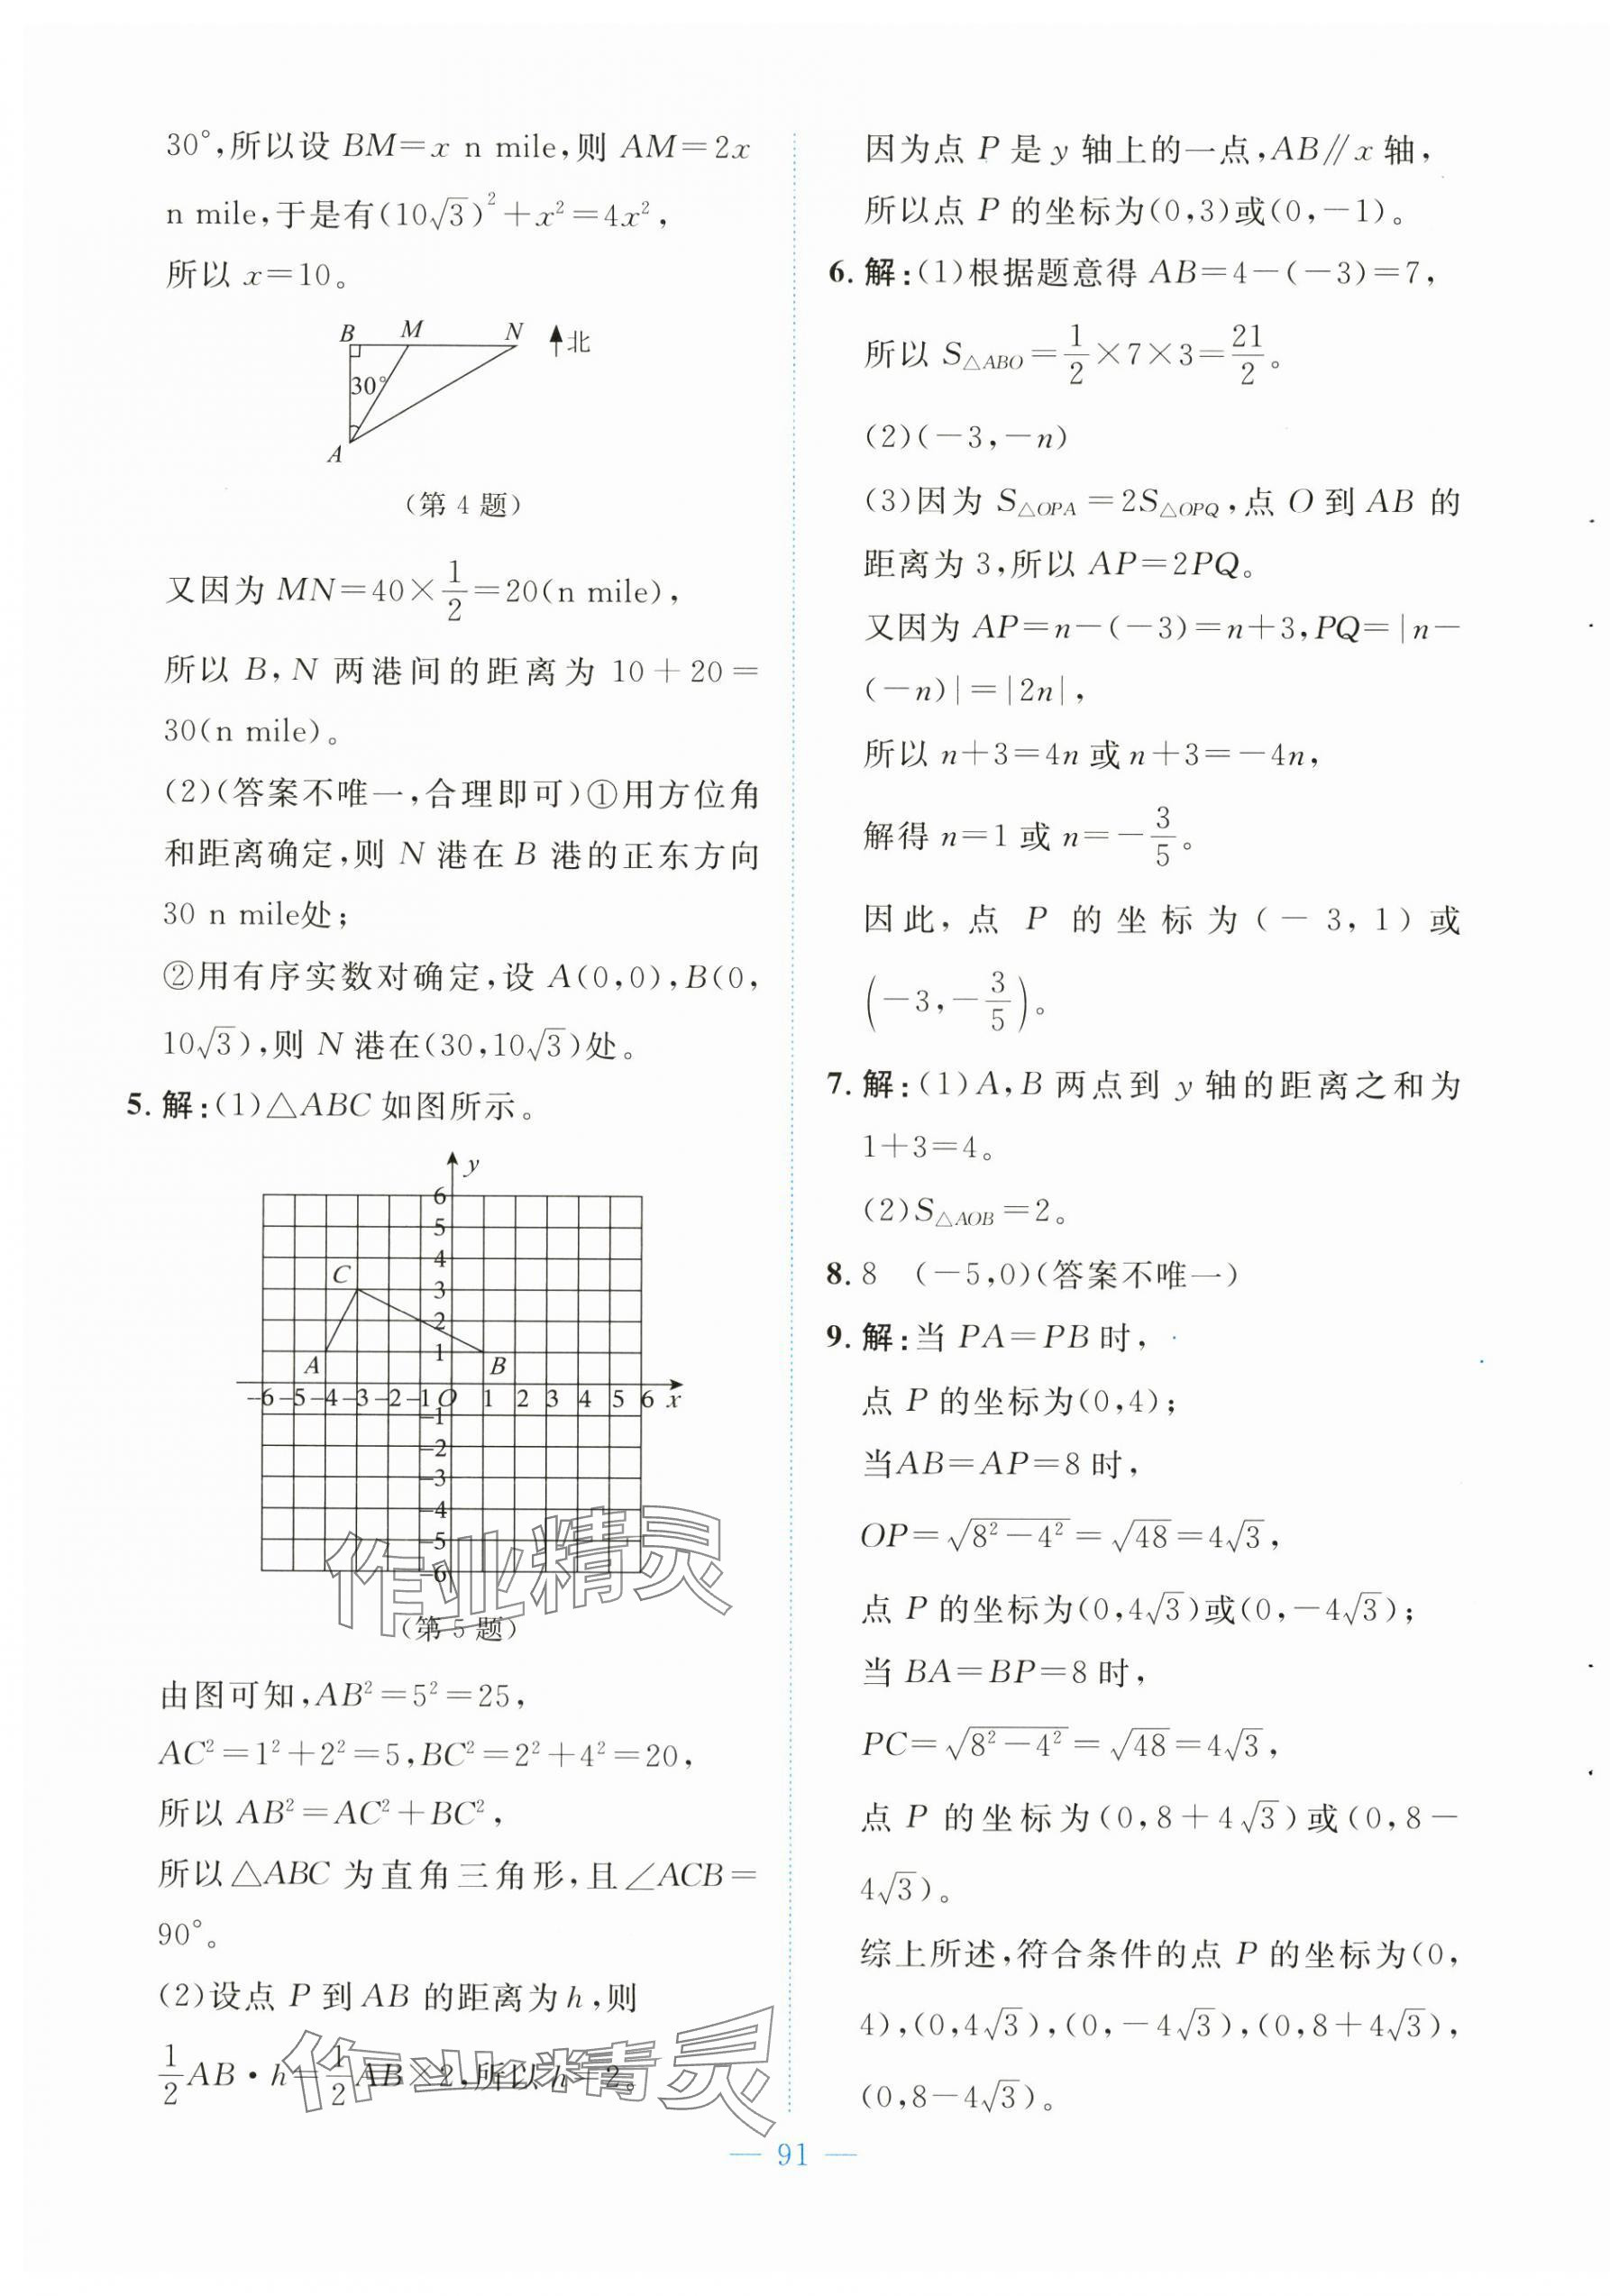 30°,所以设 BM=x n mile,则 AM=2x
n mile,于是有(10√3)²+x²=4x²,
所以 x=10。
B M N 北
30°
A
(第 4 题)
又因为 MN=40×1/2=20(n mile),
所以 B,N 两港间的距离为 10+20=
30(n mile)。
(2)(答案不唯一,合理即可)①用方位角
和距离确定,则 N 港在 B 港的正东方向
30 n mile处;
②用有序实数对确定,设 A(0,0),B(0,
10√3),则 N 港在(30,10√3)处。
5. 解:(1)△ABC 如图所示。
y
6
5
4
C
3
2
1
A
B
-6 -5 -4 -3 -2 -1 O 1 2 3 4 5 6 x
-1
-2
-3
-4
-5
-6
作业精灵
(第 5 题)
由图可知,AB²=5²=25,
AC²=1²+2²=5,BC²=2²+4²=20,
所以 AB²=AC²+BC²,
所以△ABC 为直角三角形,且∠ACB=
90°。
(2)设点 P 到 AB 的距离为 h,则
1/2AB·h=1/2AB×2,所以 h=2。
作业精灵
因为点 P 是 y 轴上的一点,AB∥x 轴,
所以点 P 的坐标为(0,3)或(0,-1)。
6. 解:(1)根据题意得 AB=4-(-3)=7,
所以 S△ABO=1/2×7×3=21/2。
(2)(-3,-n)
(3)因为 S△OPA=2S△OPQ,点 O 到 AB 的
距离为 3,所以 AP=2PQ。
又因为 AP=n-(-3)=n+3,PQ=|n-
(-n)|=|2n|,
所以 n+3=4n 或 n+3=-4n,
解得 n=1 或 n=-3/5。
因此,点 P 的坐标为(-3,1)或
(-3,-3/5)。
7. 解:(1)A,B 两点到 y 轴的距离之和为
1+3=4。
(2)S△AOB=2。
8. 8 (-5,0)(答案不唯一)
9. 解:当 PA=PB 时,
点 P 的坐标为(0,4);
当AB=AP=8 时,
OP=√(8²-4²)=√48=4√3,
点 P 的坐标为(0,4√3)或(0,-4√3);
当 BA=BP=8 时,
PC=√(8²-4²)=√48=4√3,
点 P 的坐标为(0,8+4√3)或(0,8-
4√3)。
综上所述,符合条件的点 P 的坐标为(0,
4),(0,4√3),(0,-4√3),(0,8+4√3),
(0,8-4√3)。
— 91 —